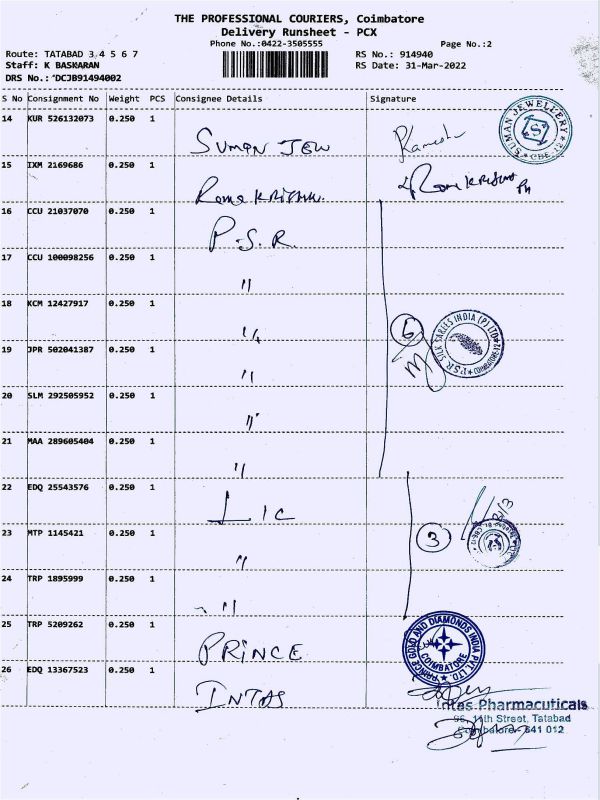 THE PROFESSIONAL COURIERS, Coimbatore
Delivery Runsheet - PCX
Phone No.:0422-3505555 Page No.:2
Route: TATABAD 3 4 5 6 7 RS No.: 914940
Staff: K BASKARAN RS Date: 31-Mar-2022
DRS No.: DCJB91494002
S No Consignment No Weight PCS Consignee Details Signature
14 KUR 526132073 0.250 1 SUMAN JEW
SUMAN JEWELLERY CBE-12
15 IXM 2169686 0.250 1 Rama KRISHNA
16 CCU 21037070 0.250 1 P.S.R.
17 CCU 100098256 0.250 1 "
18 KCM 12427917 0.250 1 "
6
P.S.R SILK SAREES INDIA (P) LTD COIMBATORE-12
19 JPR 502041387 0.250 1 "
20 SLM 292505952 0.250 1 "
21 MAA 289605404 0.250 1 "
22 EDQ 25543576 0.250 1 LIC
23 MTP 1145421 0.250 1 "
3
24 TRP 1895999 0.250 1 "
25 TRP 5209262 0.250 1 PRINCE
PRINCE GOLD AND DIAMONDS INDIA PVT. LTD. COIMBATORE
26 EDQ 13367523 0.250 1 INTAS
Intas Pharmaceuticals
96, 11th Street, Tatabad
Coimbatore- 641 012